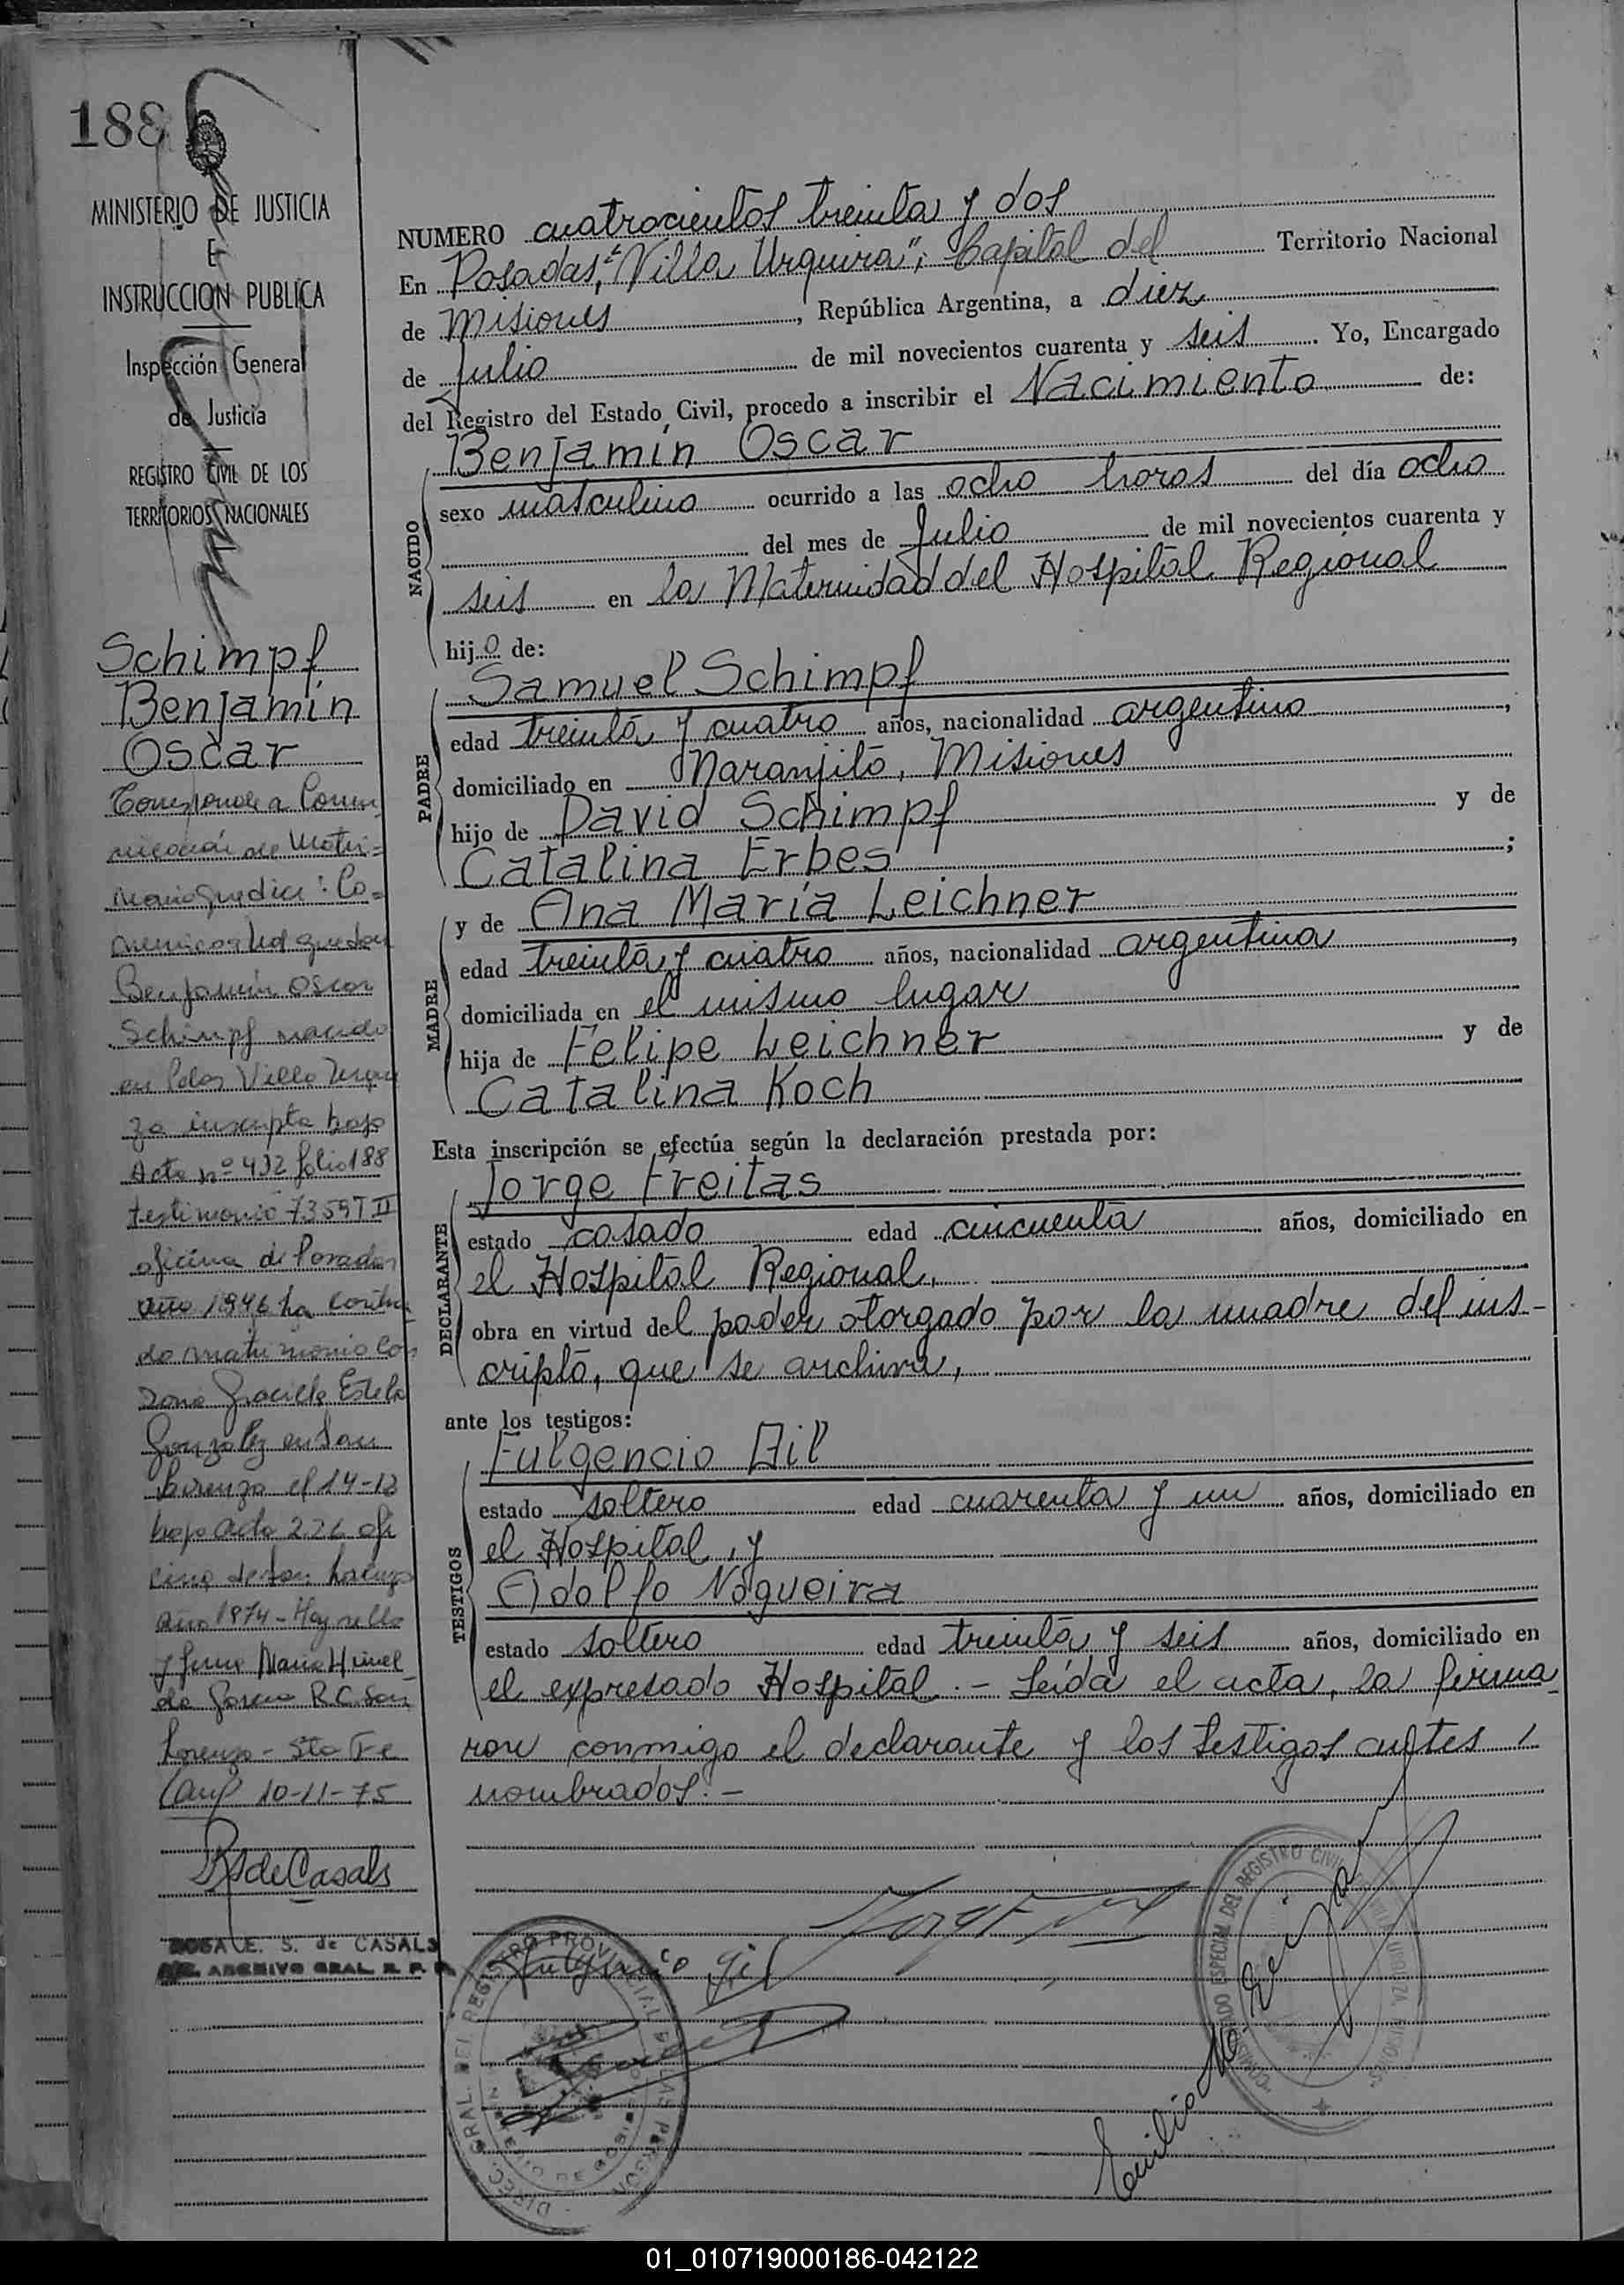 188
MINISTERIO DE JUSTICIA
E
INSTRUCCION PUBLICA
Inspección General
de Justicia
REGISTRO CIVIL DE LOS
TERRITORIOS NACIONALES
Schimpf
Benjamín
Oscar
Corresponde a Comu-
nicación de Matri-
monio que dice: Co-
munico a Ud que don
Benjamín Oscar
Schimpf nacido
en Pdas Villa Urqui
za inscripto bajo
Acta nº 432 folio 188
testimonio 7359 T II
oficina de Posadas
año 1946 ha contraí
do matrimonio con
Doña Graciela Estela
González en San
Lorenzo el 14-12
bajo acta 226 ofi
cina de San Lorenzo
año 1974 - Hay sello
y firma María H
de R.C. San
Lorenzo - Sta Fe
10-11-75
R S de Casals
ROSA E. S. de CASALS
ARCHIVO GRAL. R. P. P.
NUMERO cuatrocientos treinta y dos
En Posadas, "Villa Urquiza", Capital del Territorio Nacional
de Misiones, República Argentina, a diez
de Julio de mil novecientos cuarenta y seis. Yo, Encargado
del Registro del Estado Civil, procedo a inscribir el Nacimiento de:
NACIDO
Benjamín Oscar
sexo masculino ocurrido a las ocho horas del día ocho
del mes de Julio de mil novecientos cuarenta y
seis en la Maternidad del Hospital Regional
hijo de:
PADRE
Samuel Schimpf
edad treinta y cuatro años, nacionalidad argentino,
domiciliado en Naranjito, Misiones
hijo de David Schimpf y de
Catalina Erbes;
MADRE
y de Ana María Leichner
edad treinta y cuatro años, nacionalidad argentina,
domiciliada en el mismo lugar
hija de Felipe Leichner y de
Catalina Koch
Esta inscripción se efectúa según la declaración prestada por:
DECLARANTE
Jorge Freitas
estado casado edad cincuenta años, domiciliado en
el Hospital Regional,
obra en virtud del poder otorgado por la madre del ins-
cripto, que se archiva,
ante los testigos:
TESTIGOS
Fulgencio Gil
estado soltero edad cuarenta y un años, domiciliado en
el Hospital, y
Adolfo Nogueira
estado soltero edad treinta y seis años, domiciliado en
el expresado Hospital.- Leída el acta, la firma-
ron conmigo el declarante y los testigos antes
nombrados.-
Fulgencio Gil
DIREC. GRAL. DEL REGISTRO PROVINCIAL DE LAS PERSONAS
MINISTERIO DE GOBIERNO
ESPECIAL DEL REGISTRO CIVIL VILLA URQUIZA, MISIONES
01_010719000186-042122